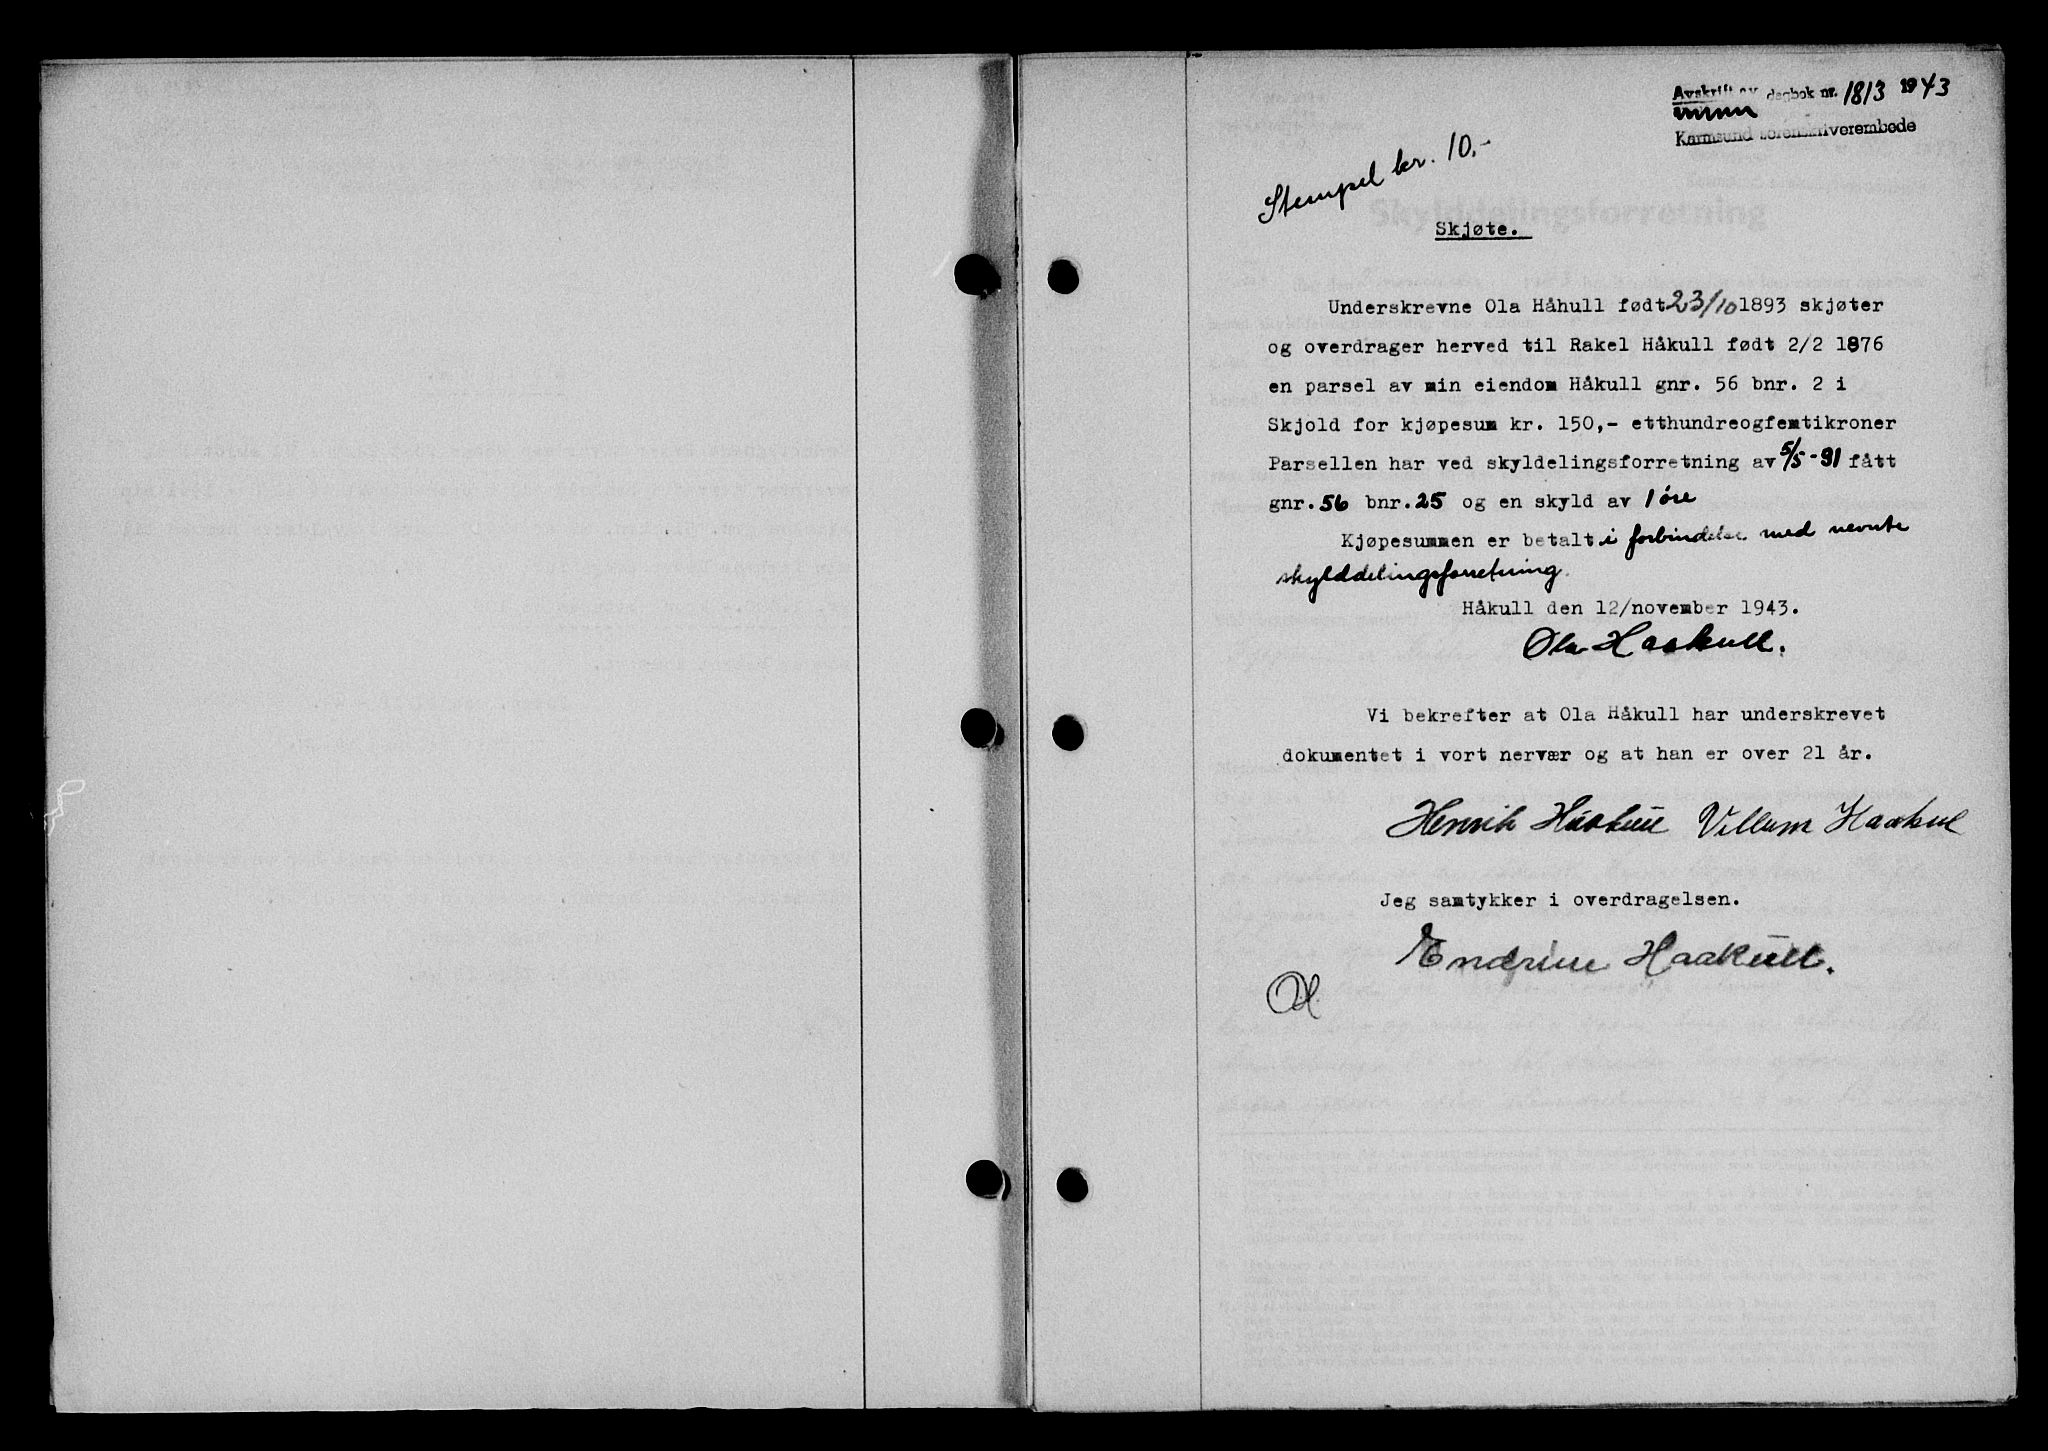 Avskrift av dagbok nr. 1813 1943
Karmsund sorenskriverembede
Stempel kr. 10,-
Skjøte.
Underskrevne Ola Håhull født 23/10 1893 skjøter
og overdrager herved til Rakel Håkull født 2/2 1876
en parsel av min eiendom Håkull gnr. 56 bnr. 2 i
Skjold for kjøpesum kr. 150,- etthundreogfemtikroner
Parsellen har ved skyldelingsforretning av 5/5-31 fått
gnr. 56 bnr. 25 og en skyld av 1 øre
Kjøpesummen er betalt i forbindelse med nevnte
skylddelingsforretning.
Håkull den 12/november 1943.
Ola Haakull.
Vi bekrefter at Ola Håkull har underskrevet
dokumentet i vort nervær og at han er over 21 år.
Henrik Haakull Villum Haakul
Jeg samtykker i overdragelsen.
Endrine Haakull.